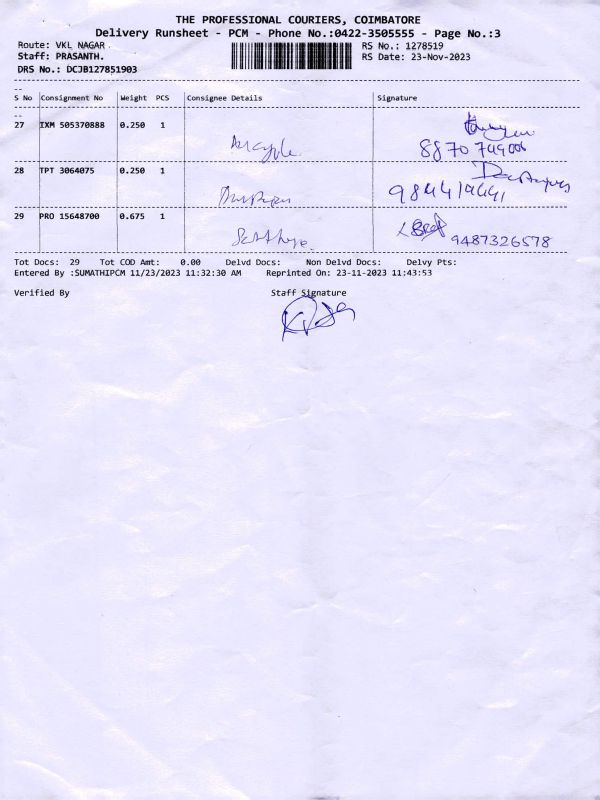 THE PROFESSIONAL COURIERS, COIMBATORE
Delivery Runsheet - PCM - Phone No.:0422-3505555 - Page No.:3
Route: VKL NAGAR RS No.: 1278519
Staff: PRASANTH. RS Date: 23-Nov-2023
DRS No.: DCJB127851903
--
S No Consignment No Weight PCS Consignee Details Signature
--
27 IXM 505370888 0.250 1
28 TPT 3064075 0.250 1
29 PRO 15648700 0.675 1
9487326578
Tot Docs: 29 Tot COD Amt: 0.00 Delvd Docs: Non Delvd Docs: Delvy Pts:
Entered By :SUMATHIPCM 11/23/2023 11:32:30 AM Reprinted On: 23-11-2023 11:43:53
Verified By Staff Signature